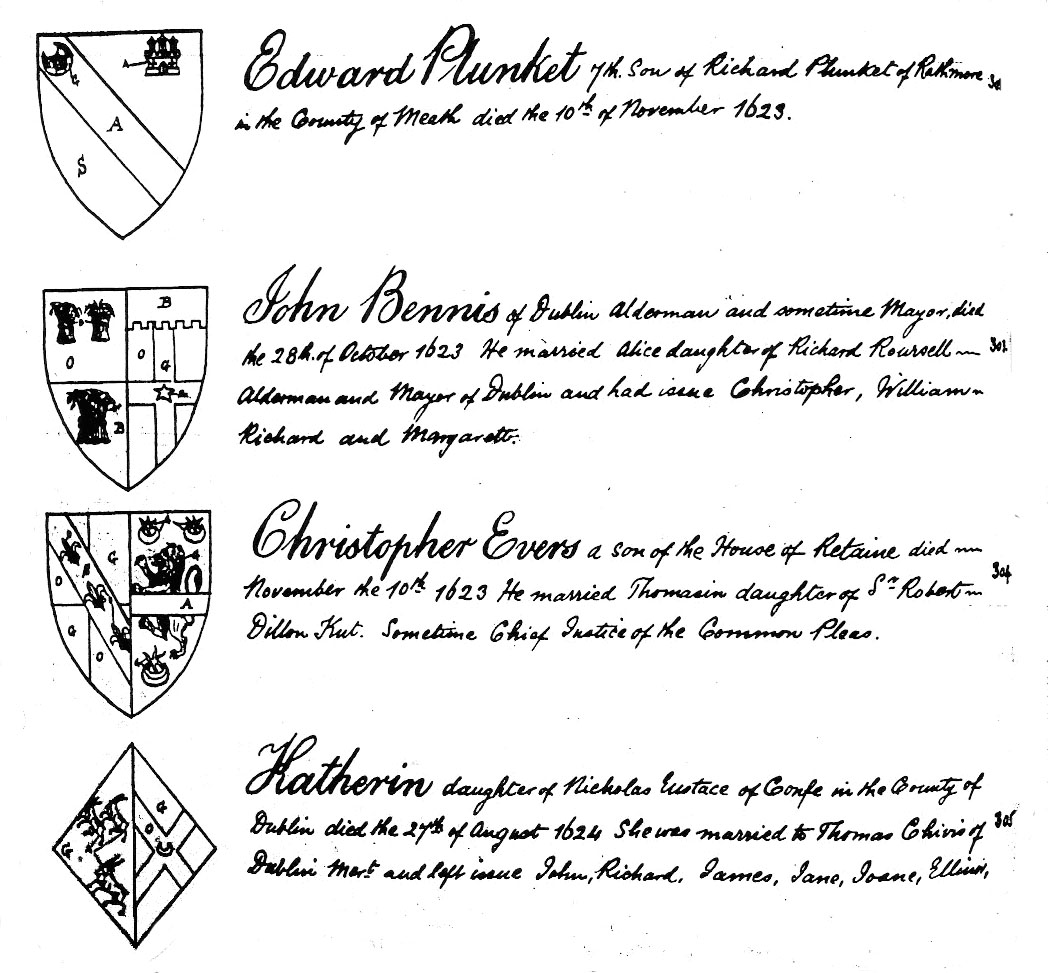 Edward Plunket 7th. Son of Richard Plunket of Rathmore
in the County of Meath died the 10th of November 1623.
John Bennis of Dublin Alderman and sometime Mayor, died
the 28th. of October 1623 He married Alice daughter of Richard Roursell
Alderman and Mayor of Dublin and had issue Christopher, William
Richard and Margarett.
Christopher Evers a son of the House of Retaine died
November the 10th 1623 He married Thomasin daughter of Sr Robert
Dillon Knt. Sometime Chief Justice of the Common Pleas.
Katherin daughter of Nicholas Eustace of Confe in the County of
Dublin died the 27th of August 1624 She was married to Thomas Chivis of 305
Dublin Mart and left issue John, Richard, James, Jane, Joane,